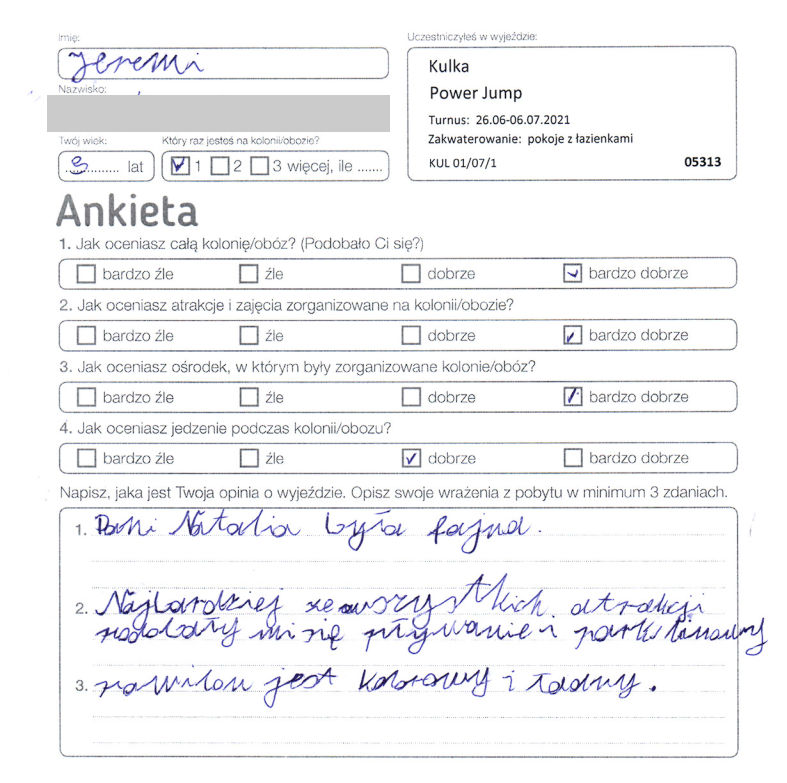 Imię:
Jeremi
Nazwisko:
Twój wiek:
lat
Który raz jesteś na kolonii/obozie?
1 2 3 więcej, ile .......
Uczestniczyłeś w wyjeździe:
Kulka
Power Jump
Turnus: 26.06-06.07.2021
Zakwaterowanie: pokoje z łazienkami
KUL 01/07/1 05313
Ankieta
1. Jak oceniasz całą kolonię/obóz? (Podobało Ci się?)
bardzo źle źle dobrze bardzo dobrze
2. Jak oceniasz atrakcje i zajęcia zorganizowane na kolonii/obozie?
bardzo źle źle dobrze bardzo dobrze
3. Jak oceniasz ośrodek, w którym były zorganizowane kolonie/obóz?
bardzo źle źle dobrze bardzo dobrze
4. Jak oceniasz jedzenie podczas kolonii/obozu?
bardzo źle źle dobrze bardzo dobrze
Napisz, jaka jest Twoja opinia o wyjeździe. Opisz swoje wrażenia z pobytu w minimum 3 zdaniach.
1. Pani Natalia była fajna.
2. Najbardziej ze wszystkich atrakcji
podobały mi się pływanie i park linowy
3. pawilon jest kolorowy i ładny.